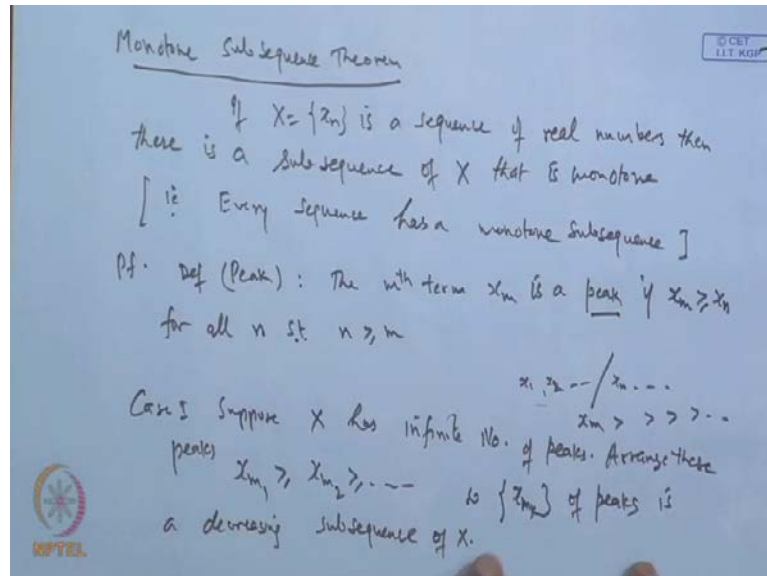 Monotone Subsequence Theorem
© CET
I.I.T. KGP
If X = {xn} is a sequence of real numbers then
there is a subsequence of X that is monotone
[ ie Every sequence has a monotone subsequence ]
Pf. Def (Peak) : The mth term xm is a peak if xm ≥ xn
for all n s.t. n ≥ m
x1, x2 -- / xm ....
xm > > > > ..
Case I Suppose X has infinite No. of peaks. Arrange these
peaks xm1 ≥, xm2 ≥, .... so {xmk} of peaks is
a decreasing subsequence of X.
NPTEL